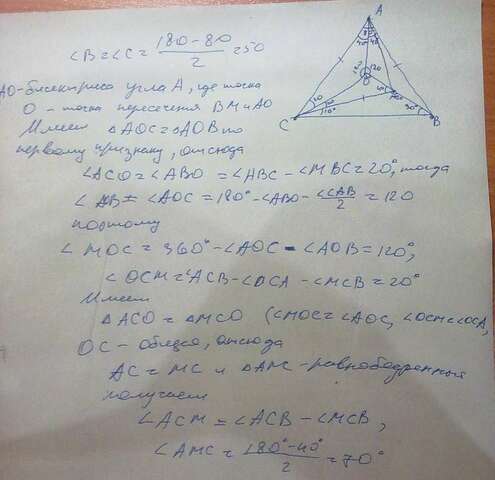 ∠B=∠C= (180-80)/2 =50
AO-биссектриса угла A, где точка
O - точка пересечения BM и AO
Имеем △AOC=△AOB по
первому признаку, отсюда
∠ACO=∠ABO = ∠ABC - ∠MBC=20°, тогда
∠AOB=∠AOC=180°-∠ABO-∠CAB/2 =120
поэтому
∠MOC=360°-∠AOC-∠AOB=120°,
∠OCM=∠ACB-∠OCA-∠MCB=20°
Имеем
△ACO=△MCO (∠MOC=∠AOC, ∠OCM=∠OCA,
OC-общая, отсюда
AC=MC и △AMC-равнобедренный
получаем
∠ACM=∠ACB-∠MCB,
∠AMC= (180°-40°)/2 =70°
A
120
O
C
B